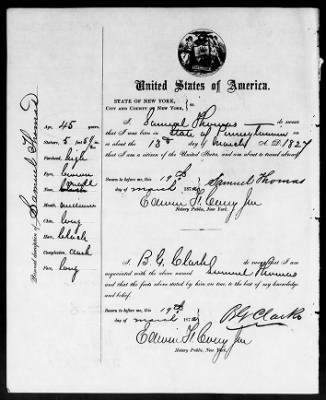 United States of America.
STATE OF NEW YORK,
CITY AND COUNTY OF NEW YORK, } ss.
I, Samuel Thomas do swear
that I was born in State of Pennsylvania on
or about the 13th day of March A.D. 1827
that I am a citizen of the United States, and am about to travel abroad.
Sworn to before me, this 19th
day of March 187
Samuel Thomas
Notary Public, New York.
I, B. G. Clark do
acquainted with the above named Samuel Thomas
and that the facts above stated by him are true, to the best of my knowledge
and belief.
Sworn to before me, this 19th
day of March 187
B G Clarke
Notary Public, New York.
Personal description of Samuel Thomas
Age, 45 years.
Stature, 5 feet 8
Forehead, high
Eyes, brown
Nose, straight
Mouth, medium
Chin, long
Hair, black
Complexion, dark
Face, long